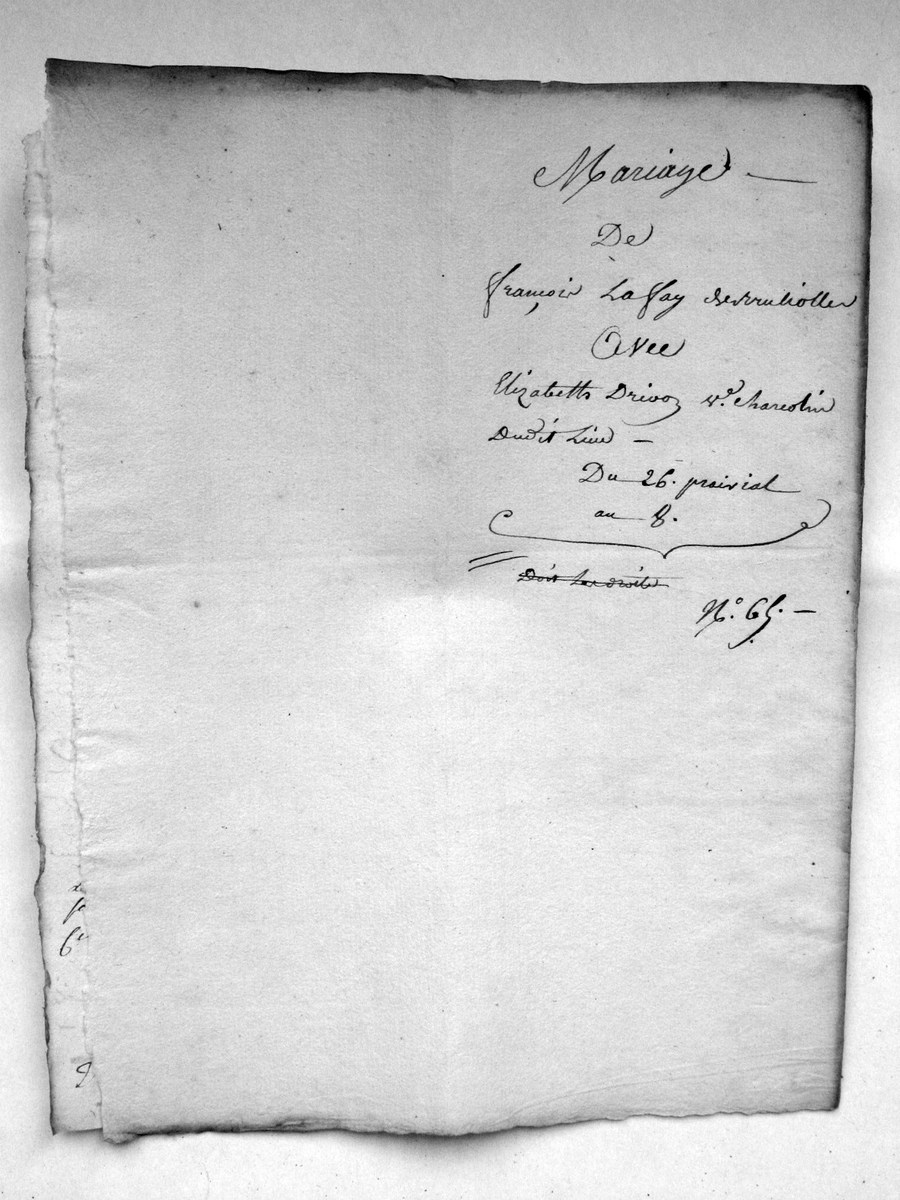 Mariage —
De
françois Laffay
Avec
Elizabeth Drivoz ve. Charcolin
Dudit Lieu —
Du 26. prairial
an 8.
Doit Les droits
N°. 65. —